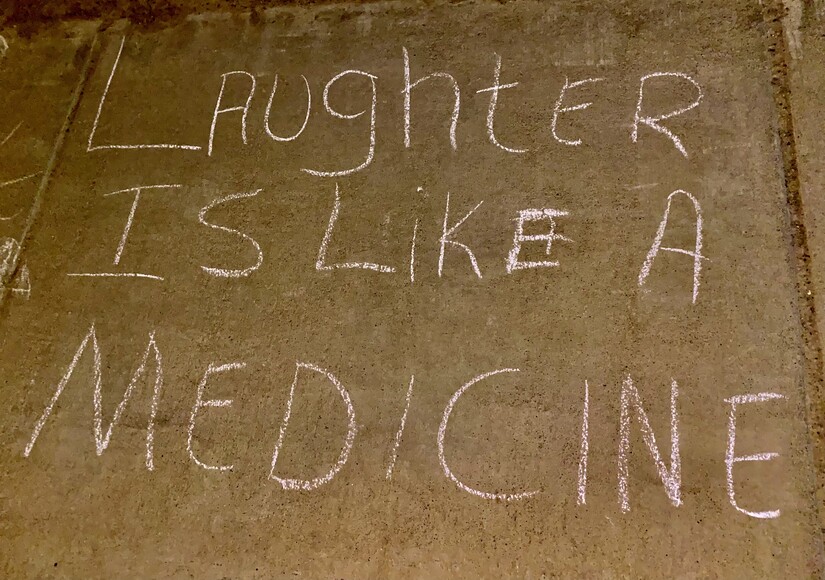 LAUghtER
IS LiKE A
MEDICINE